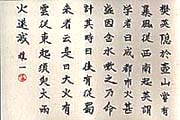 樊英隱於壺山嘗有
暴風從西南起英謂
學者曰成都市火甚
盛因含水嗽之乃命
計其時日後有從蜀
來者云是日大火有
雲從東起須臾大雨
火遂滅 雄一